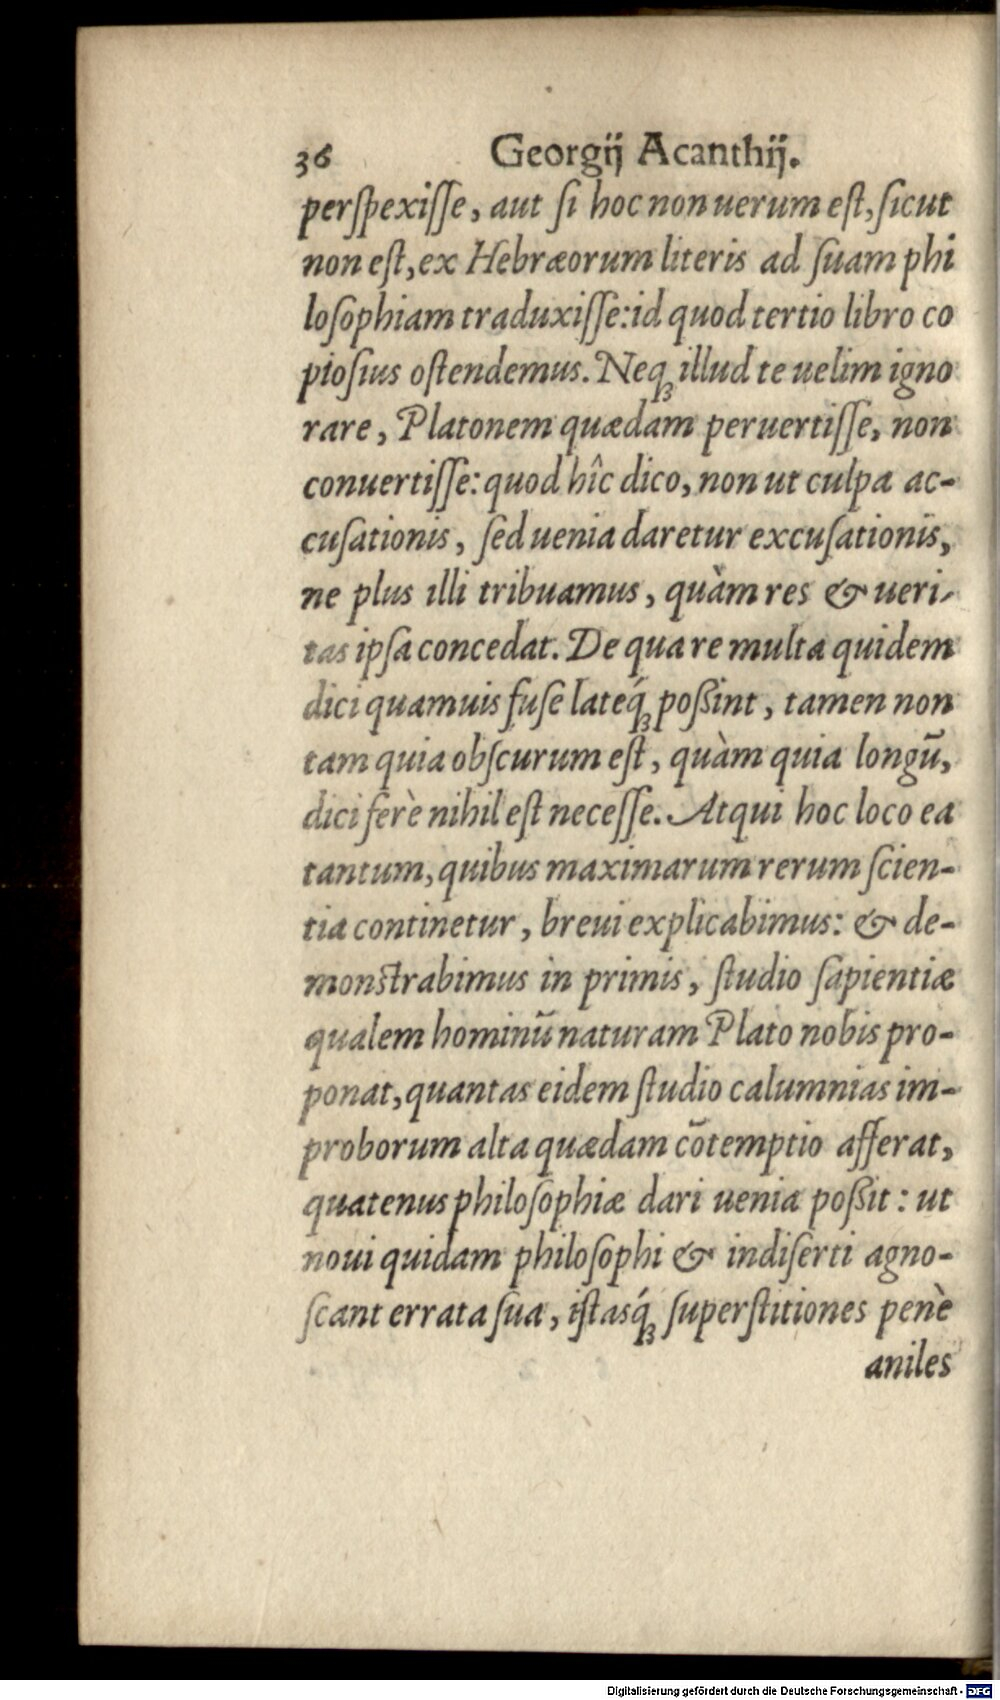 36 Georgij Acanthij.
perſpexiſſe, aut ſi hoc non uerum eſt, ſicut
non eſt, ex Hebræorum literis ad ſuam phi
loſophiam traduxiſſe: id quod tertio libro co
pioſius oſtendemus. Neqꝫ illud te uelim igno
rare, Platonem quædam peruertiſſe, non
conuertiſſe: quod hîc dico, non ut culpa ac-
cuſationis, ſed uenia daretur excuſationis,
ne plus illi tribuamus, quàm res & ueri-
tas ipſa concedat. De qua re multa quidem
dici quamuis fuſe lateq́ꝫ poßint, tamen non
tam quia obſcurum eſt, quàm quia longū,
dici ferè nihil eſt neceſſe. Atqui hoc loco ea
tantum, quibus maximarum rerum ſcien-
tia continetur, breui explicabimus: & de-
monſtrabimus in primis, ſtudio ſapientiæ
qualem hominū naturam Plato nobis pro-
ponat, quantas eidem ſtudio calumnias im-
proborum alta quædam cōtemptio afferat,
quatenus philoſophiæ dari uenia poßit: ut
noui quidam philoſophi & indiſerti agno-
ſcant errata ſua, iſtasq́ꝫ ſuperſtitiones penè
aniles
Digitalisierung gefördert durch die Deutsche Forschungsgemeinschaft - DFG